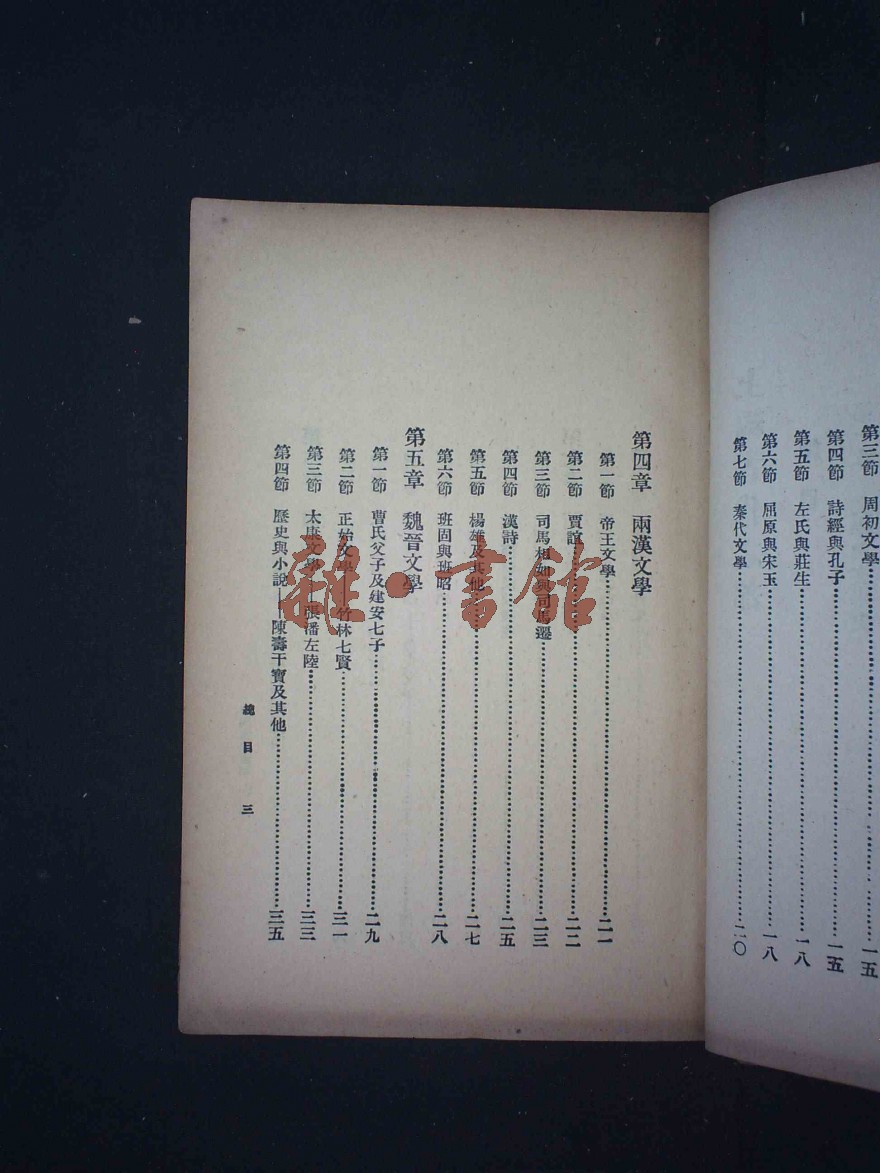 第三節 周初文學……一五
第四節 詩經與孔子……一五
第五節 左氏與莊生……一八
第六節 屈原與宋玉……一八
第七節 秦代文學……二〇
第四章 兩漢文學
第一節 帝王文學……二一
第二節 賈誼……二二
第三節 司馬相如與司馬遷……二三
第四節 漢詩……二五
第五節 楊雄及其他……二七
第六節 班固與班昭……二八
第五章 魏晉文學
第一節 曹氏父子及建安七子……二九
第二節 正始文學——竹林七賢……三一
第三節 太康文學——張潘左陸……三三
第四節 歷史與小說——陳壽干寶及其他……三五
總目 三
雜·書館